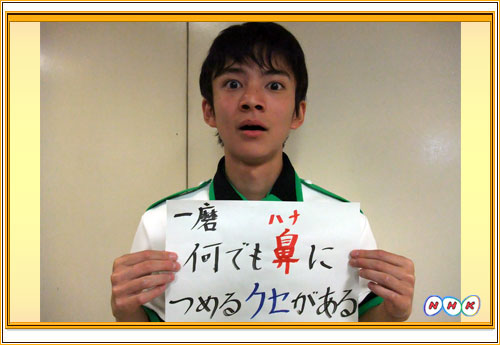 一磨
ハナ
何でも鼻に
つめるクセがある
NHK